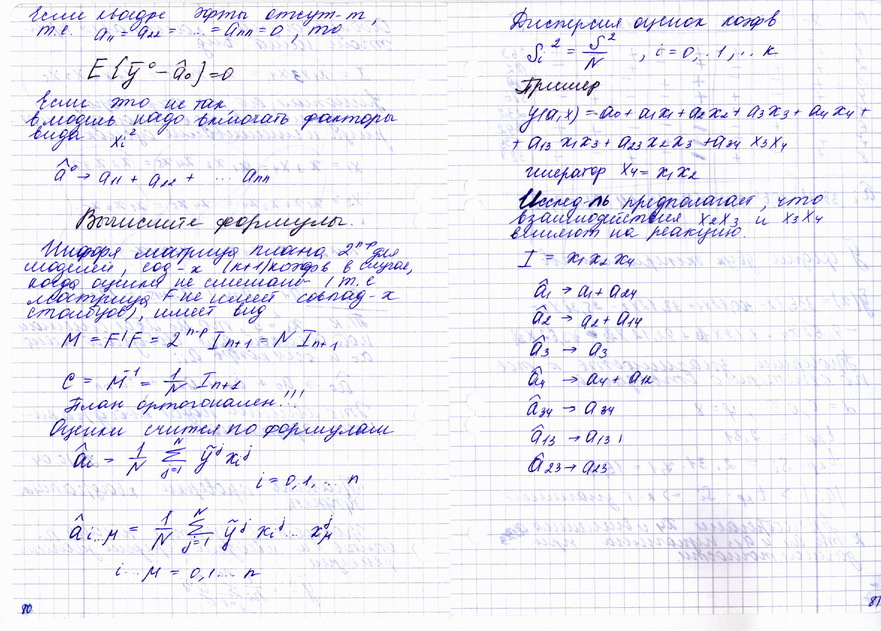 Если квадр эфты отсут-т,
т.е. a₁₁ = a₂₂ = ... = aₙₙ = 0, то
E{ȳ⁰ - â₀} = 0
Если это не так,
в модель надо включать факторы
вида xᵢ²
â⁰ → a₁₁ + a₂₂ + ... aₙₙ
Вычислите формулы.
Информ матрица плана 2ⁿ⁻ᵖ для
моделей, сод-х (k+1) коэфв в случае,
когда оценки не смешаны (т.е
матрица F не имеет совпад-х
столбцов), имеет вид
M = F'F = 2ⁿ⁻ᵖ Iₙ₊₁ = N Iₙ₊₁
C = M⁻¹ = 1/N Iₙ₊₁
План ортогонален!!!
Оценки считтся по формулам
âᵢ = 1/N Σ ȳʲ xᵢʲ
j=1 N
i = 0,1,... n
âᵢ...μ = 1/N Σ ȳʲ xᵢʲ ... xμʲ
j=1 N
i...μ = 0,1... n
80
Дисперсия оценок коэфв
Sᵢ² = S²/N , i = 0, 1, .. k
Пример
y(a,x) = a₀ + a₁x₁ + a₂x₂ + a₃x₃ + a₄x₄ +
+ a₁₃ x₁x₃ + a₂₃ x₂x₃ + a₃₄ x₃x₄
генератор x₄ = x₁x₂
Исслед-ль предполагает, что
взаимодействия x₂x₃ и x₃x₄
влияют на реакцию.
I = x₁x₂x₄
â₁ → a₁ + a₂₄
â₂ → a₂ + a₁₄
â₃ → a₃
â₄ → a₄ + a₁₂
â₃₄ → a₃₄
â₁₃ → a₁₃
â₂₃ → a₂₃
81